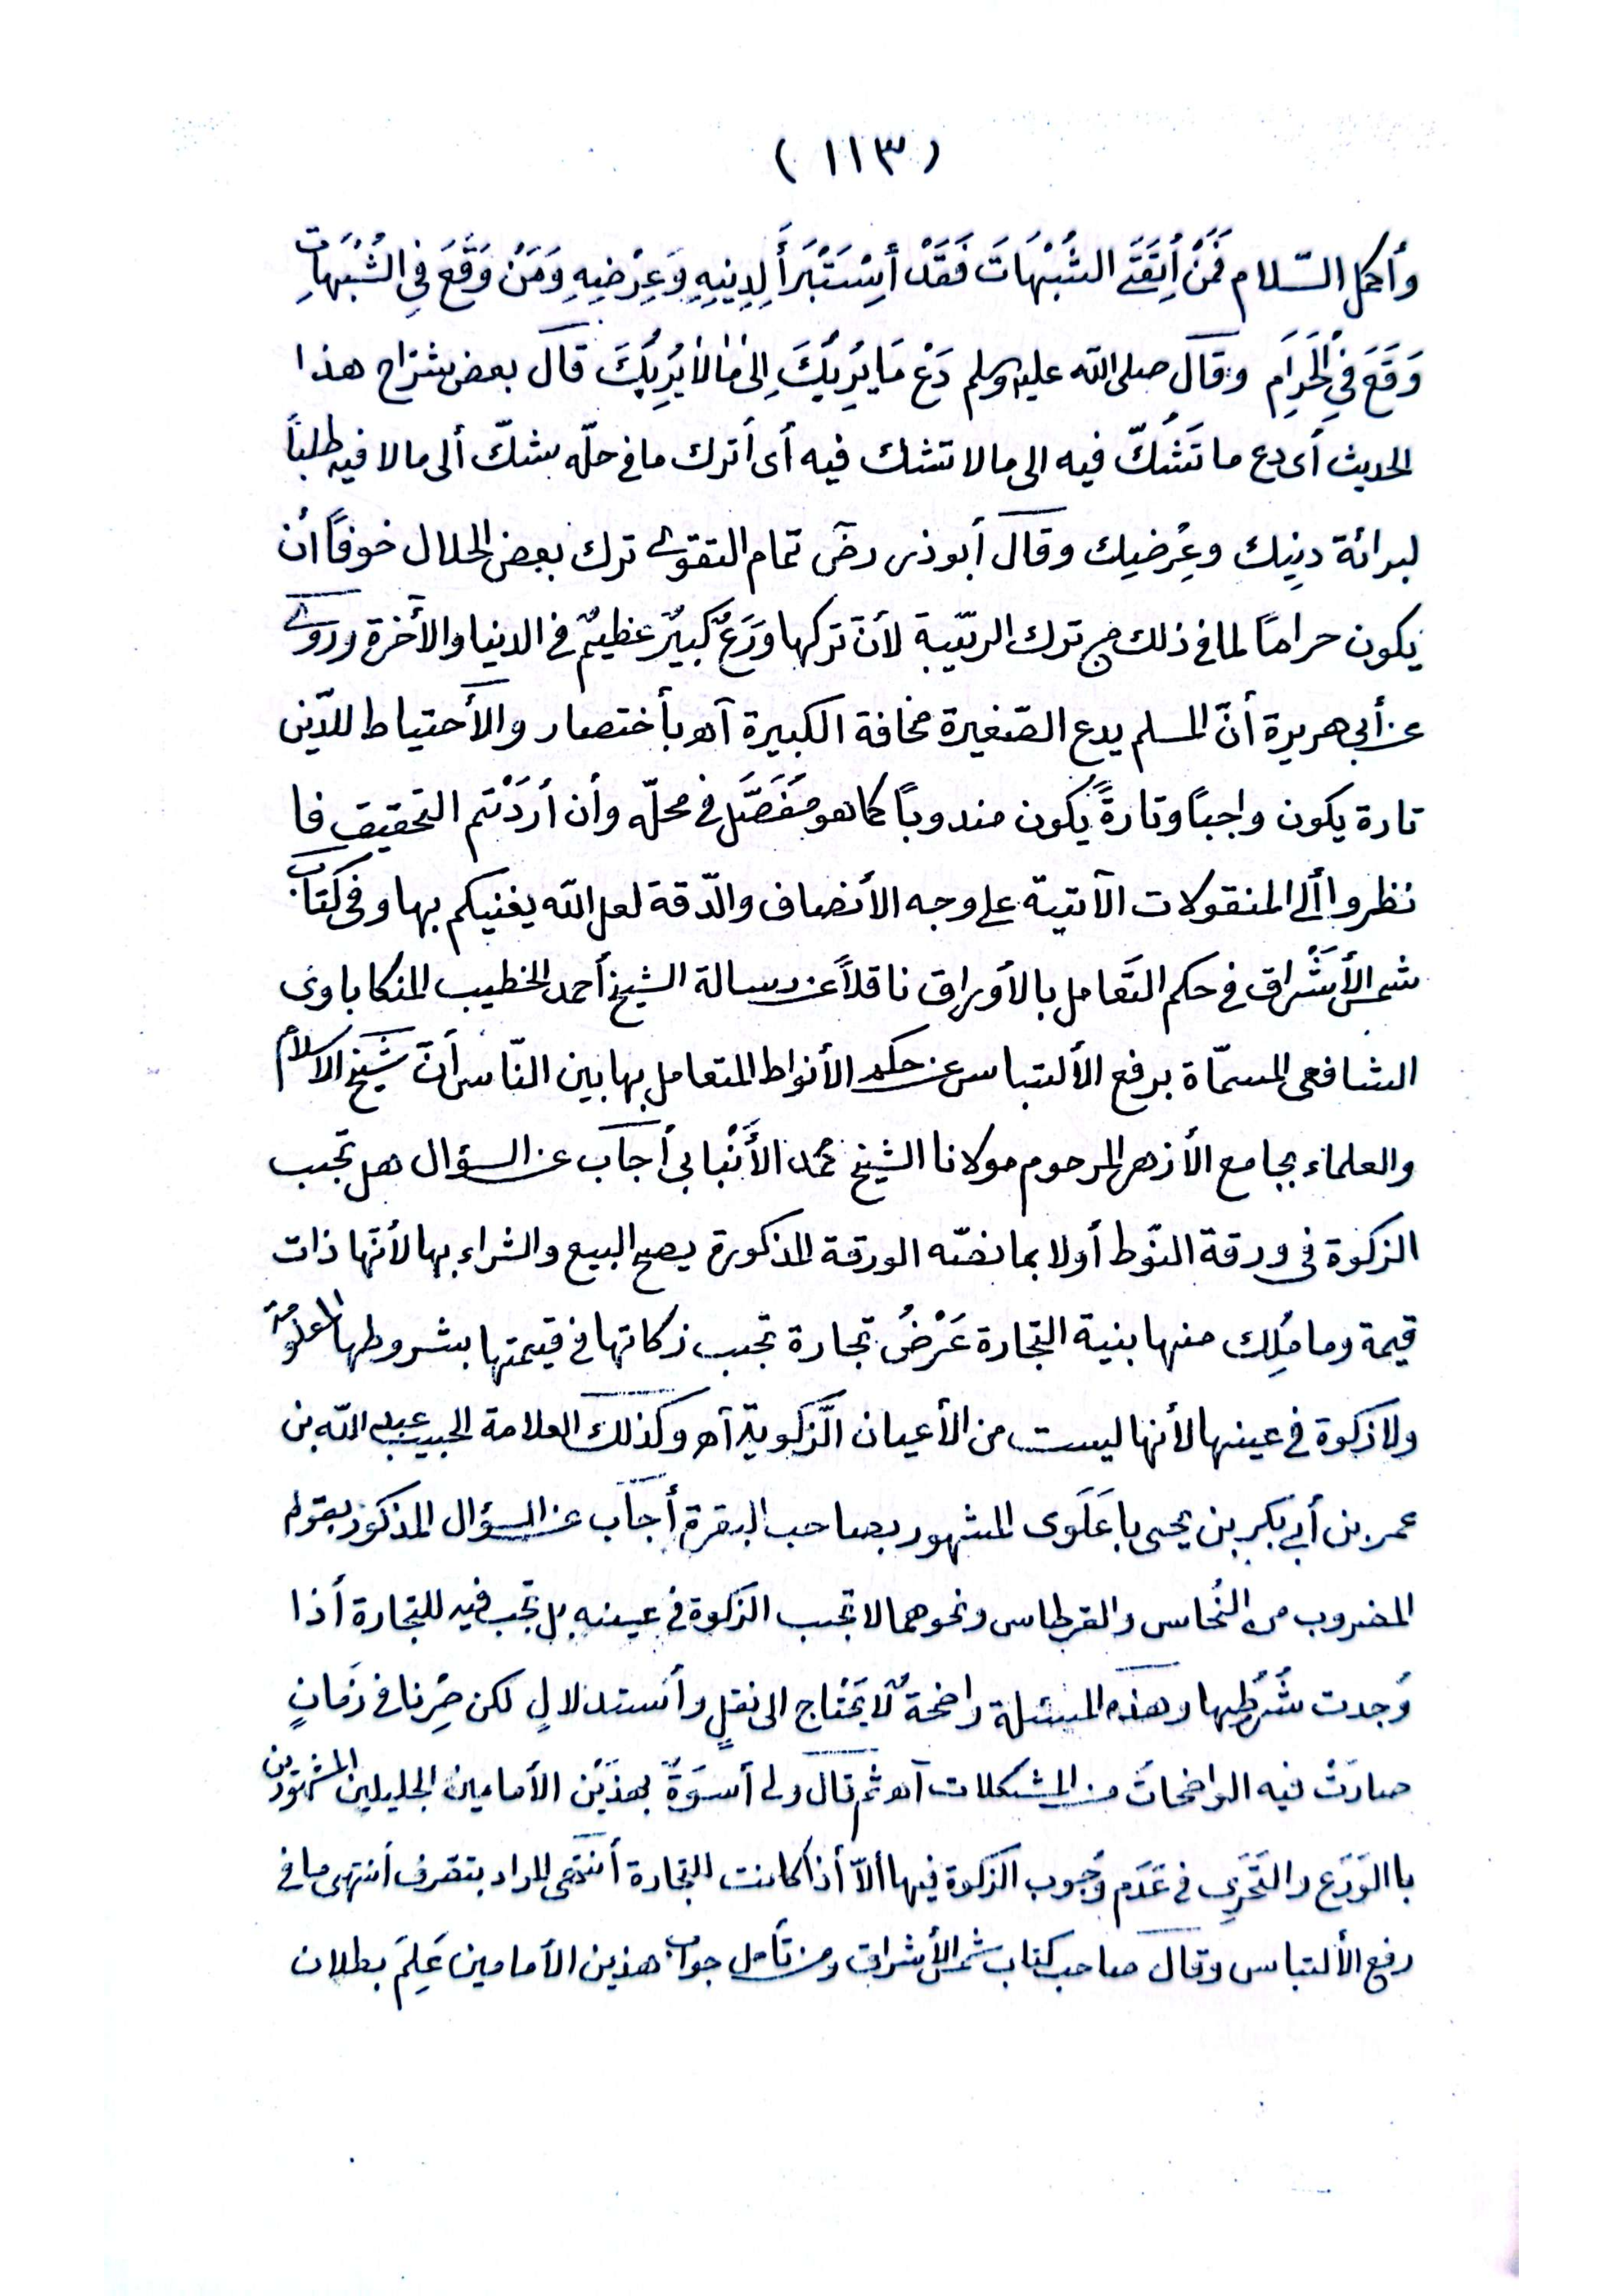 (١١٣)
وأكمل السّلام فَمَنْ أِتَّقَىَ الشُبْهَاتَ فَقَدْ أسِسْتَبْرَأَ لِدِينِهِ وَعِرْضِهِ وَمَنْ وَقَعَ فِي الشُبْهَاتِ
وَقَعَ فِي الْحَرَامِ وقال صلى الله عليه وسلم دَعْ مَا يُرِيبُكَ إِلىٰ مٰالٰا يُرِيبُكَ قال بعض شرّاح هذا
الحديث أى دع ما تَشُكّ فيه الى مالا تشك فيه أى أترك ما فى حلّه شكّ ألى مالا فيه طلباً
لبرائة دينِك وعِرْضِك وقال أبو ذر رضى تمام التقوى ترك بعض الحلال خوفاً أن
يكون حراماً لما فى ذلك من ترك الريّبة لأنّ تركها وَرَعٌ كبيرٌ عظيمٌ فى الدنيا والأخرة وروى
عن أبي هريرة أنّ المسلم يدع الصّغيرة مخافة الكبيرة آه بأختصار والأحتياط للدّين
تارة يكون واجباً وتارةً يكون مندوباً كما هو مُفَصَّل فى محلّه وأن أردْتم التحقيق فا
نظروا ألى المنقولات الآتيّة على وجه الأنصاف والدّقة لعل الله يغنيكم بها وفى كتاب
شمس الأشْراق فى حكم التّعامل بالأوراق ناقلاً عن رسالة الشيخ أحمد الخطيب المنكاباوى
الشافعى المسمّاة برفع الألتباس عن حكم الأنواط المتعامل بها بين النّاس أنّ شيخ الاسلام
والعلماء بجامع الأزهر المرحوم مولانا الشيخ محمد الأَنْبابى أجاب عن السؤال هل تجب
الزكوة فى ورقة النّوط أولا بما نصّه الورقة المذكورة يصح البيع والشراء بها لأنّها ذات
قيمة وما مُلِك منها بنية التجارة عَرْضُ تجارة تجب زكاتها فى قيمتها بشروطها المعلومة
ولا زكوة فى عينها لأنها ليست من الأعيان الزّكويّة آه وكذلك العلامة الحبيب عبد الله بن
عمر بن أبي بكر بن يحيى باعَلَوى المشهور بصاحب البقرة أجاب عن السؤال المذكور بقوله
المضروب من النُحاس والقرطاس ونحوهما لا تجب الزكوة فى عينه بل تجب فيه للتجارة أذا
وُجدت شُرُطها وهذه المسئلة واضحةٌ لا يَحْتاج الى نقلٍ وأستدلالٍ لكن صِرْنا فى زمانٍ
صارَتْ فيه الواضحاتُ من المشكلات آه ثم قال ولى أسوَةٌ بهذَيْن الأمامين الجليلين المشهورين
باالوَرَع والتَحَرِى فى عَدَم وُجوب الزكوة فيها ألاّ أذا كانت للتجارة أنتهى المراد بتصرف أنتهى ما فى
رفع الألتباس وقال صاحب كتاب شمس الأشراق ومن تأمل جواب هذين الأمامين عَلِمَ بطلان